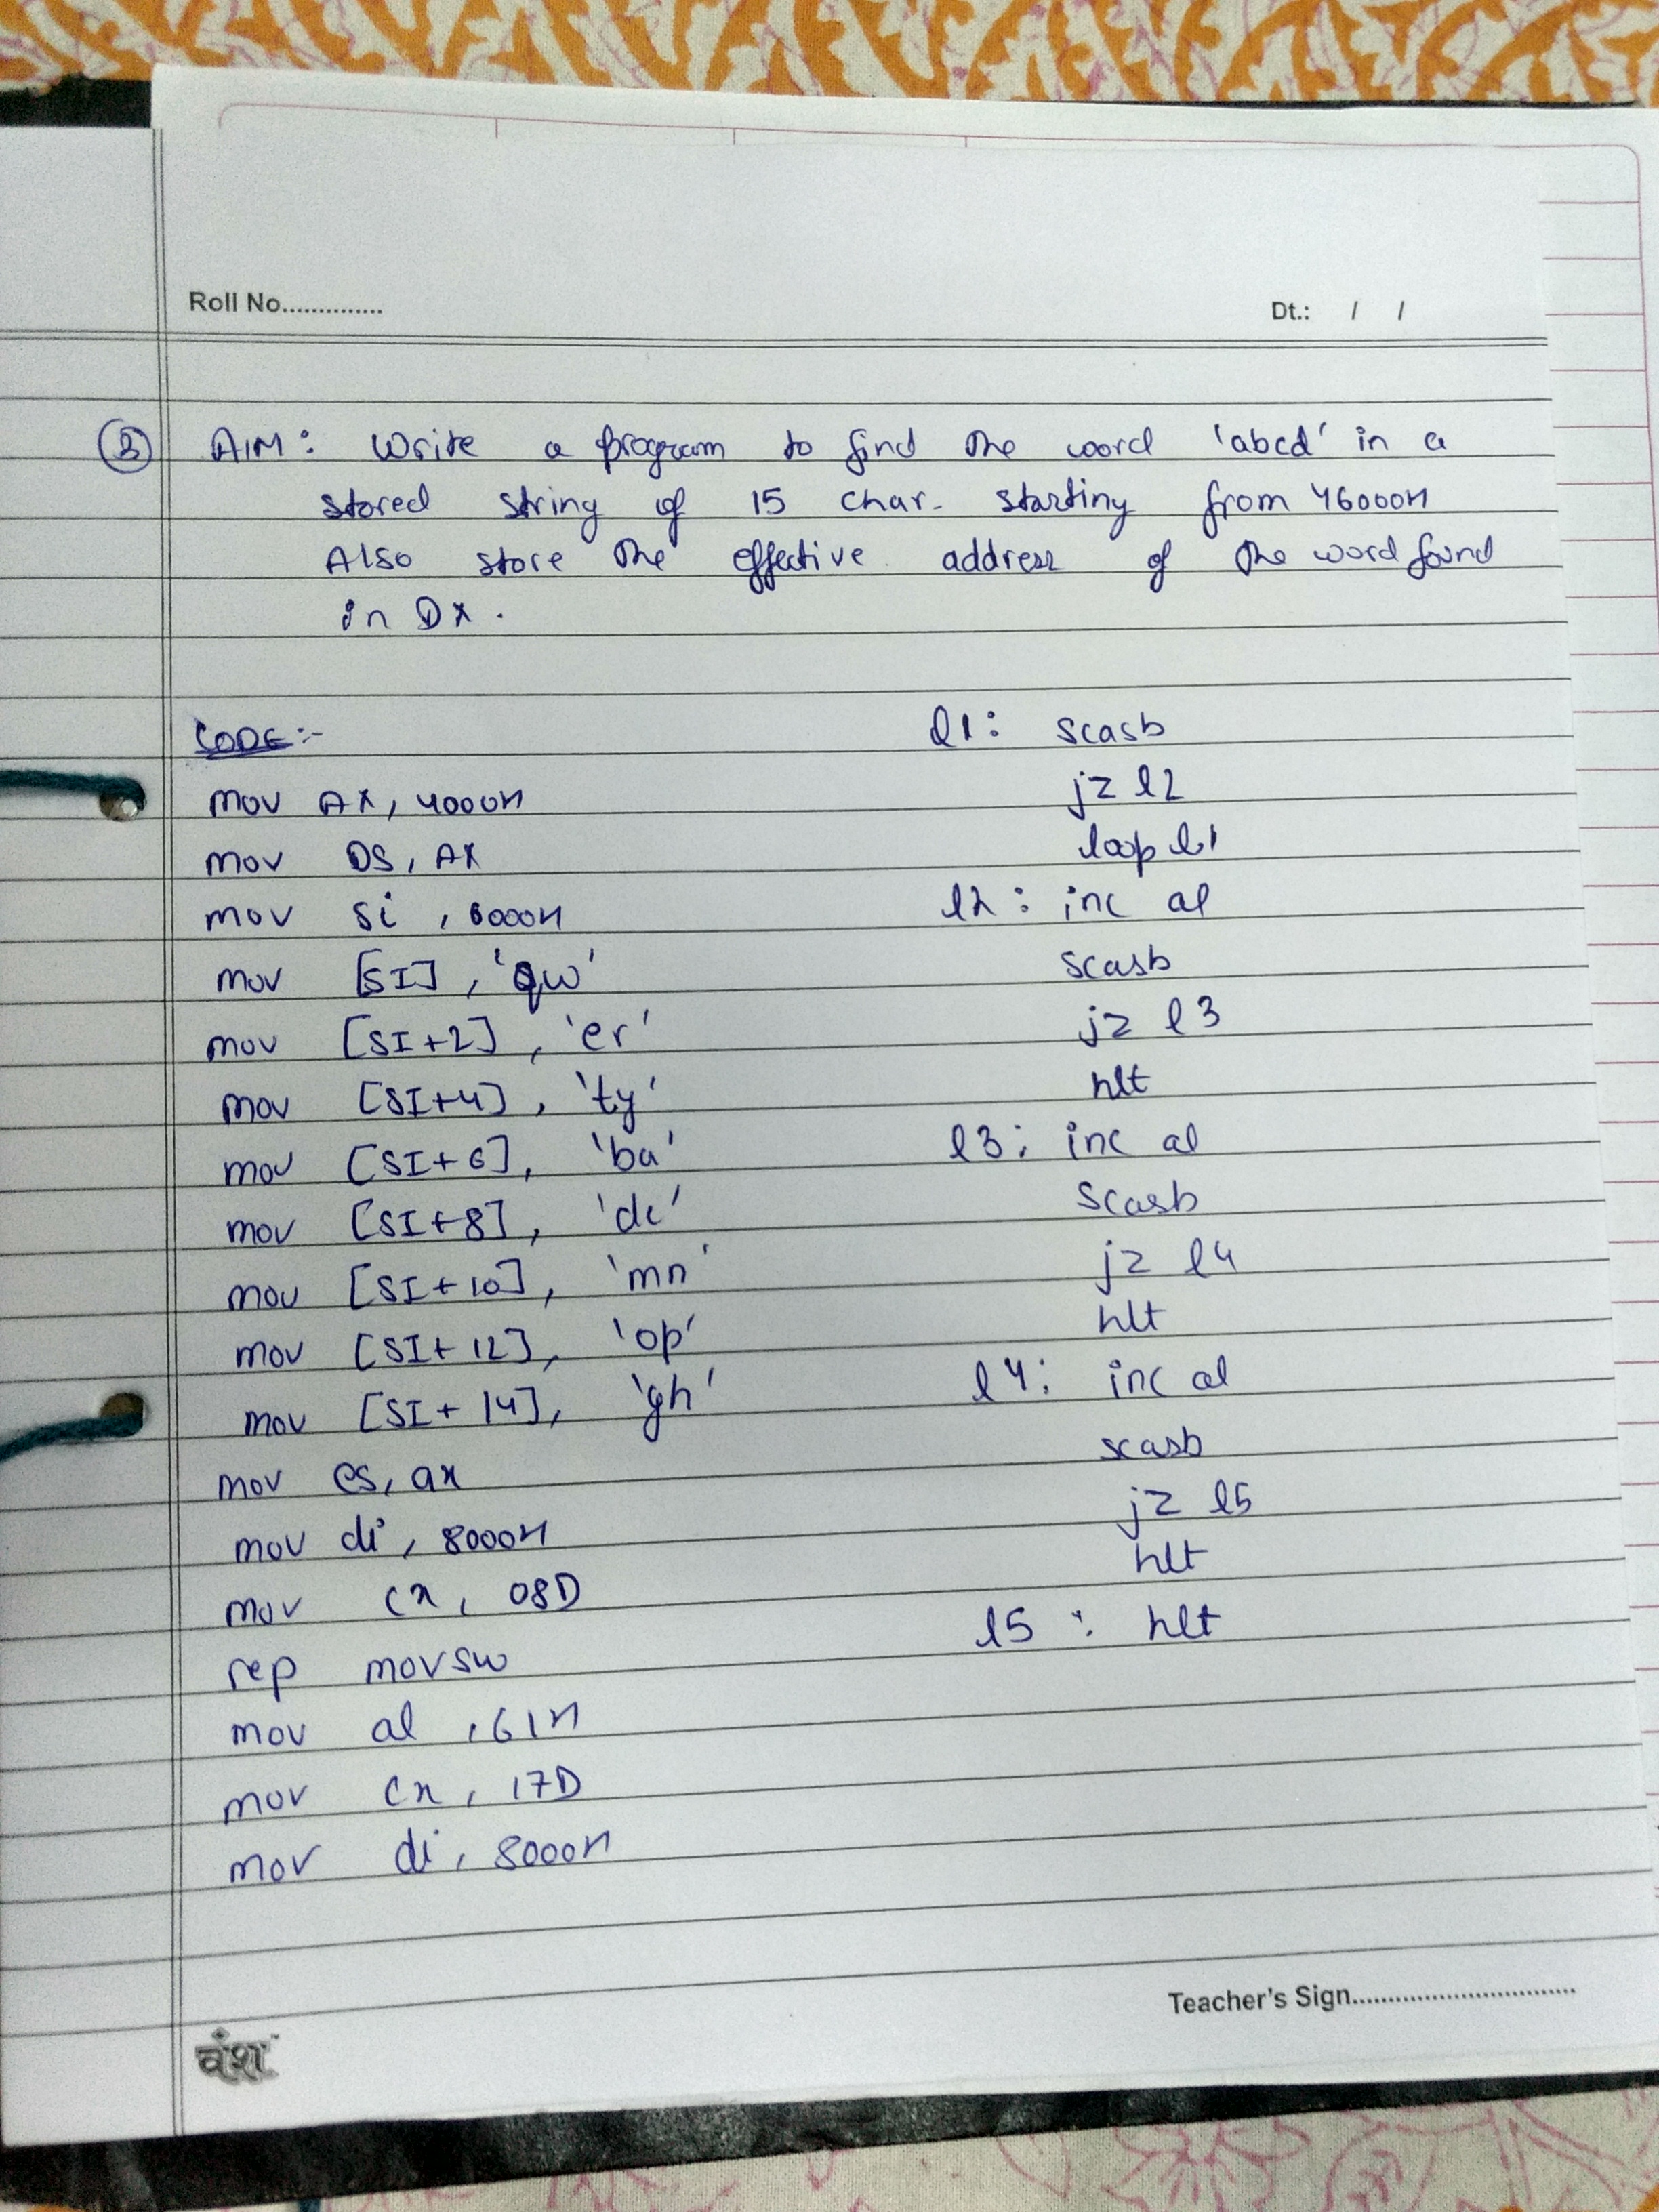 Roll No..............
Dt.: / /
3 AIM: Write a program to find the word 'abcd' in a
stored string of 15 char. starting from 46000H
Also store the effective address of the word found
in DX.
CODE:-
mov AX, 4000H
mov DS, AX
mov si, 6000H
mov [SI], 'qw'
mov [SI+2], 'er'
mov [SI+4], 'ty'
mov [SI+6], 'ba'
mov [SI+8], 'dc'
mov [SI+10], 'mn'
mov [SI+12], 'op'
mov [SI+14], 'gh'
mov es, ax
mov di, 8000H
mov cx, 08D
rep movsw
mov al, 61H
mov cx, 17D
mov di, 8000H
l1: scasb
jz l2
loop l1
l2: inc al
scasb
jz l3
hlt
l3: inc al
scasb
jz l4
hlt
l4: inc al
scasb
jz l5
hlt
l5: hlt
Teacher's Sign..............................
वंश